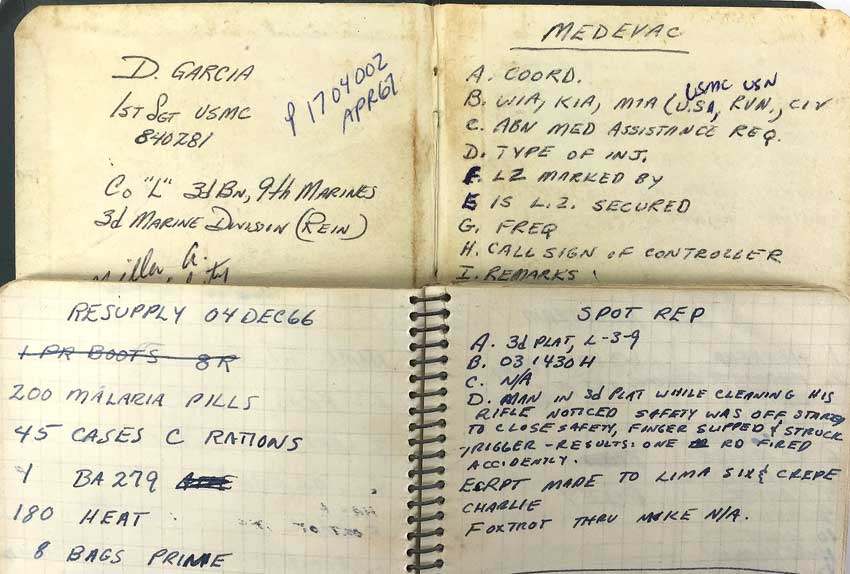 D. GARCIA
1ST SGT USMC
840281
170400Z
APR67
CO "L" 3d BN, 9th MARINES
3d MARINE DIVISION (REIN)
Miller, G.
MEDEVAC
A. COORD.
USMC USN
B. WIA, KIA, MIA (USA, RVN., CIV
C. ABN MED ASSISTANCE REQ.
D. TYPE OF INJ.
F. LZ MARKED BY
E IS L.Z. SECURED
G. FREQ
H. CALL SIGN OF CONTROLLER
I. REMARKS
RESUPPLY 04 DEC 66
1 PR BOOTS 8R
200 MALARIA PILLS
45 CASES C RATIONS
1 BA 279
180 HEAT
8 BAGS PRIME
SPOT REP
A. 3d PLAT, L-3-9
B. 031430H
C. N/A
D. MAN IN 3d PLAT WHILE CLEANING HIS
RIFLE NOTICED SAFETY WAS OFF STARTED
TO CLOSE SAFETY, FINGER SLIPPED & STRUCK
TRIGGER - RESULTS: ONE RD FIRED
ACCIDENTLY.
E. RPT MADE TO LIMA SIX & CREPE
CHARLIE
FOXTROT THRU MIKE N/A.